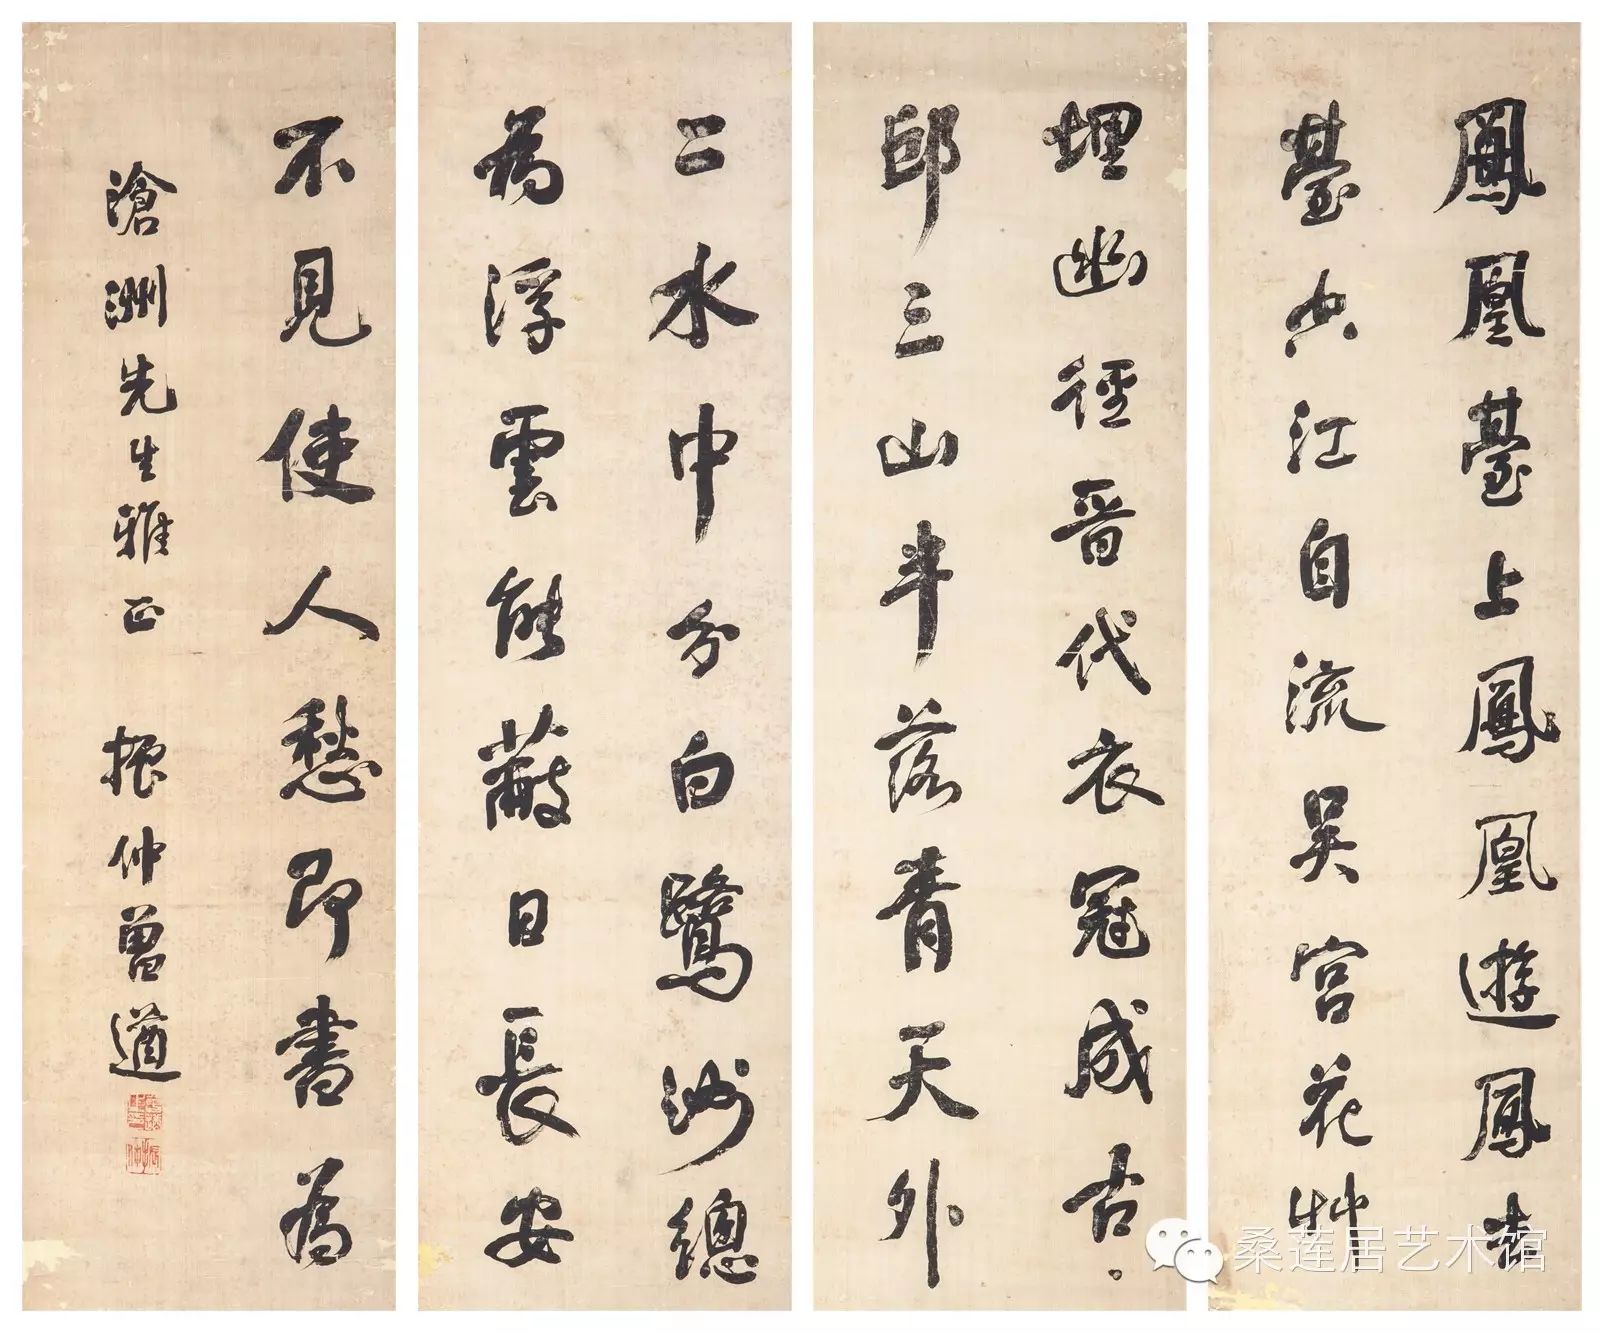 鳳凰臺上鳳凰遊鳳去
臺空江自流吳宮花艸
埋幽徑晉代衣冠成古
邱三山半落青天外
二水中分白鷺洲總
為浮雲能蔽日長安
不見使人愁即書為
滄洲先生雅正 振仲曾遒
桑莲居艺术馆